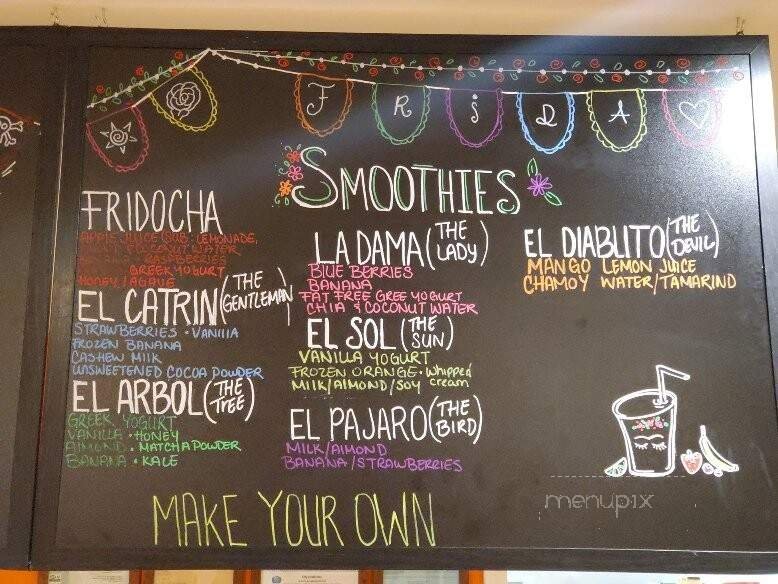 FRIDA
SMOOTHIES
FRIDOCHA
APPLE JUICE (SUB: LEMONADE,
COCONUT WATER
RASPBERRIES
GREEK YOGURT
HONEY / AGAVE
EL CATRIN (THE GENTLEMAN)
STRAWBERRIES • VANIIIA
FROZEN BANANA
CASHEW MILK
UNSWEETENED COCOA POWDER
EL ARBOL (THE TREE)
GREEK YOGURT
VANILLA • HONEY
AIMOND • MATCHA POWDER
BANANA • KALE
LA DAMA (THE LADY)
BLUE BERRIES
BANANA
FAT FREE GREE YOGURT
CHIA & COCONUT WATER
EL SOL (THE SUN)
VANILLA YOGURT
FROZEN ORANGE • Whipped
MILK/AIMOND/SOY cream
EL PAJARO (THE BIRD)
MILK/AIMOND
BANANA/STRAWBERRIES
EL DIABLITO (THE DEVIL)
MANGO LEMON JUICE
CHAMOY WATER/TAMARIND
MAKE YOUR OWN
menupix